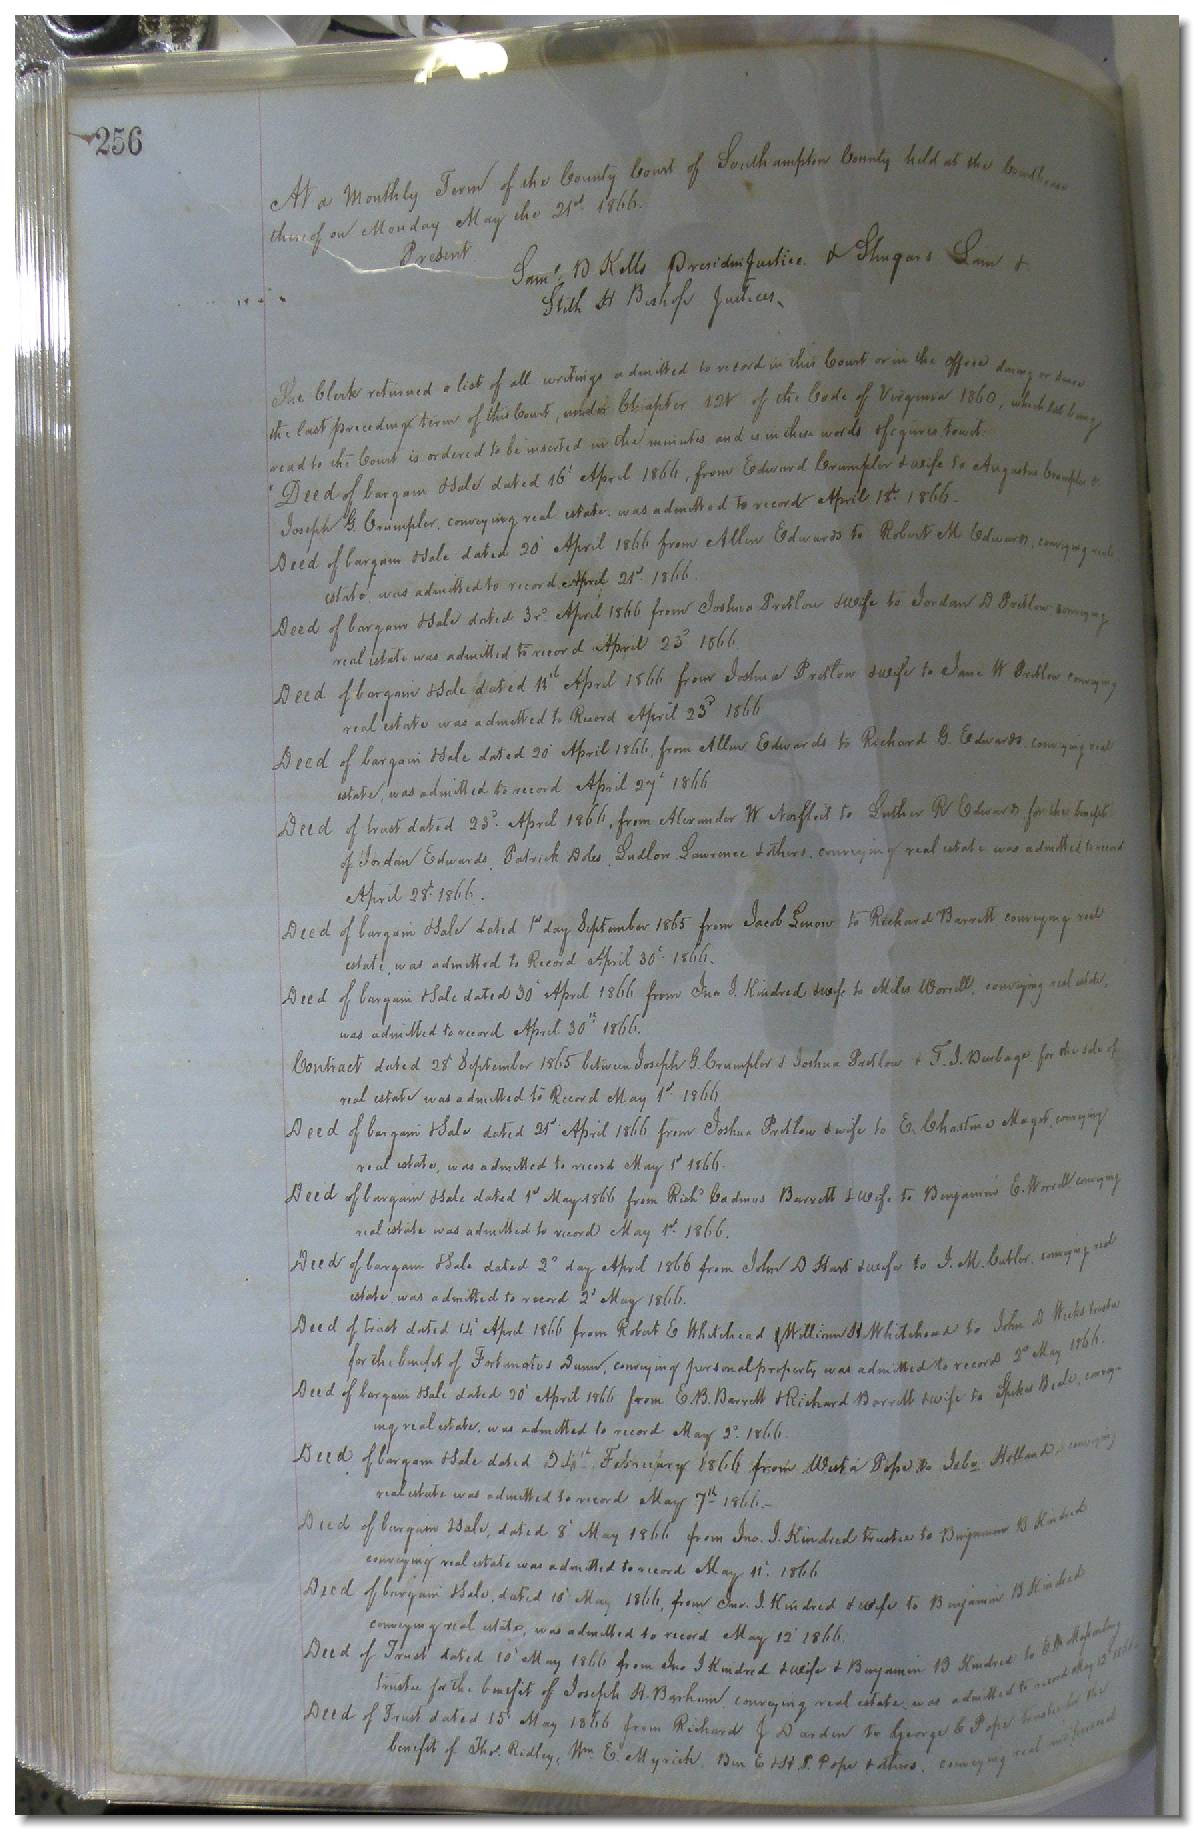 256
At a Monthly Term of the County Court of Southampton County held at the Courthouse
thereof on Monday May the 21st 1866.
Present
Saml. D Kello Presiden Justice & Shugars Lain &
Stith H Bishop Justices.
The Clerk returned a list of all writings admitted to record in this Court or in the office during or since
the last preceding term of this Court, under Chapter 121 of the Code of Virginia 1860, which list being
read to the Court is ordered to be inserted in the minutes and is in these words & figures, towit:
"Deed of bargain & Sale dated 16t April 1866, from Edward Crumpler & wife to Augustus Crumpler &
Joseph G. Crumpler, conveying real estate, was admitted to record April 18t. 1866.
Deed of bargain & Sale dated 20t April 1866 from Allen Edwards to Robert M Edwards, conveying real
estate, was admitted to record April 21st 1866.
Deed of bargain & Sale dated 3rd April 1866 from Joshua Pretlow & wife to Jordan D Pretlow conveying
real estate was admitted to record April 23d 1866
Deed of bargain & Sale dated April 1866 from Joshua Pretlow & wife to Jane W Pretlow conveying
real estate was admitted to Record April 23d 1866
Deed of bargain & Sale dated 20t April 1866, from Allen Edwards to Richard G. Edwards, conveying real
estate, was admitted to record April 27t 1866
Deed of trust dated 23d. April 1866, from Alexander W Norfleet to Luther R Edwards for the benefit
of Jordan Edwards, Patrick Doles, Ludlow Lawrence & others, conveying real estate was admitted to record
April 28t 1866.
Deed of bargain & Sale dated 1st day September 1865 from Jacob to Richard Barrett conveying real
estate, was admitted to Record April 30t. 1866.
Deed of bargain & Sale dated 30t April 1866 from Jno J. Kindred & wife to Miles Worrell, conveying real estate,
was admitted to record April 30th 1866.
Contract dated 28t September 1865 between Joseph G. Crumpler & Joshua Pretlow & T. J. Burbage, for the sale of
real estate was admitted to Record May 1st 1866
Deed of bargain & Sale dated 21st April 1866 from Joshua Pretlow & wife to E. Maget, conveying
real estate, was admitted to record May 1st 1866.
Deed of bargain & Sale dated 1st May 1866 from Richd Cadmus Barrett & wife to Benjamin E. Worrell conveying
real estate was admitted to record May 1st. 1866.
Deed of bargain & Sale dated 2d day April 1866 from John D Hart & wife to J. M. Cutler, conveying real
estate was admitted to record 2d May 1866.
Deed of trust dated April 1866 from Robert E Whitehead & William H Whitehead to John D Weeks trustee
for the benefit of Fortunatus Dunn, conveying personal property, was admitted to record 2d May 1866.
Deed of bargain & Sale dated 20t April 1866 from E. B. Barrett & Richard Barrett & wife to Beale, convey-
ing real estate, was admitted to record May 2d. 1866.
Deed of bargain & Sale dated 24th. February 1866 from Pope to Holland, conveying
real estate was admitted to record May 7th 1866.–
Deed of bargain & Sale, dated 8t May 1866 from Jno. J. Kindred trustee to Benjamin B Kindred
conveying real estate was admitted to record May 11t. 1866
Deed of bargain & Sale, dated 10t May 1866, from Jno. J. Kindred & wife to Benjamin B Kindred
conveying real estate, was admitted to record May 12t 1866.
Deed of Trust dated 10t May 1866 from Jno J Kindred & wife & Benjamin B Kindred to
trustee for the benefit of Joseph H. Barham conveying real estate, was admitted to record May 12t 1866.
Deed of Trust dated 15t May 1866 from Richard J Darden to George E Pope trustee for the
benefit of Thos. Ridley, Wm. E. Myrick, Ben E & H. S. Pope & others, conveying real and personal